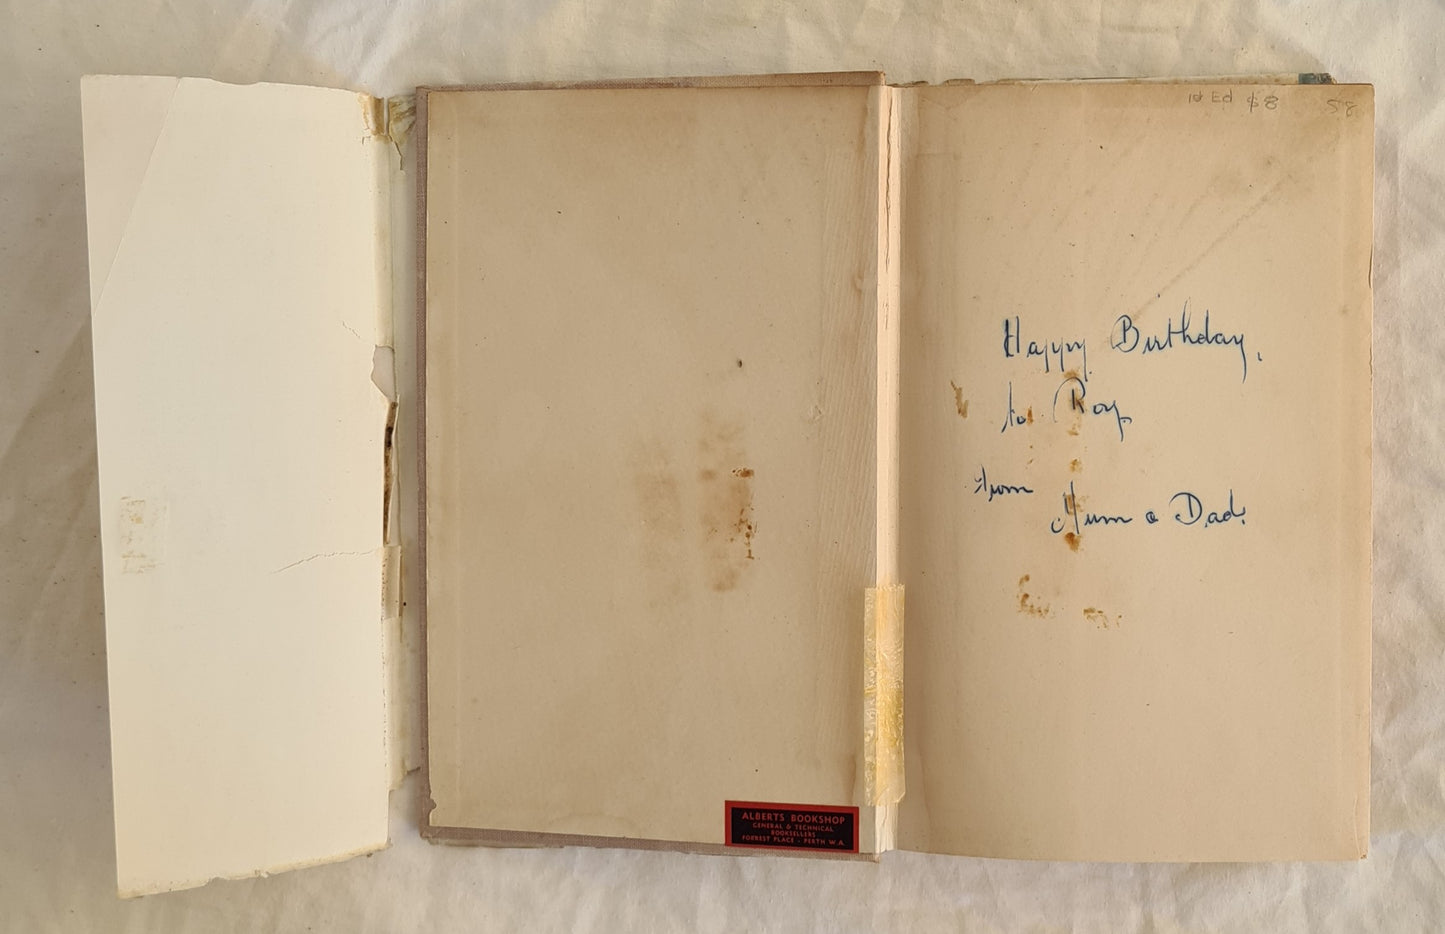 1st Ed $8 58
Happy Birthday,
to Roy.
From
Mum & Dad.
ALBERTS BOOKSHOP
GENERAL & TECHNICAL
BOOKSELLERS
FORREST PLACE - PERTH W.A.